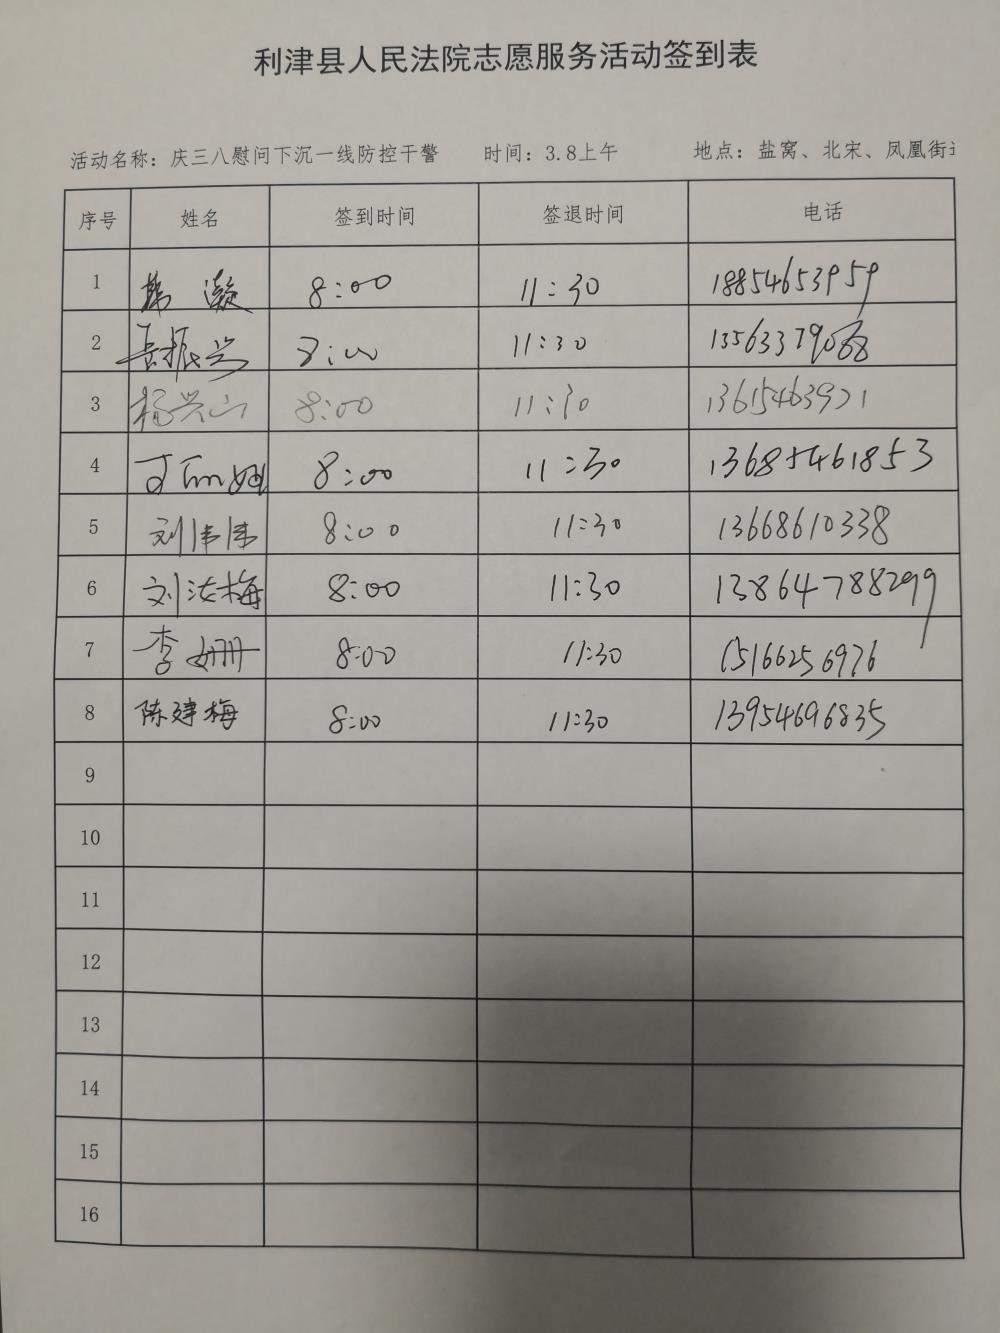 利津县人民法院志愿服务活动签到表
活动名称：庆三八慰问下沉一线防控干警 时间：3.8上午 地点：盐窝、北宋、凤凰街
序号 姓名 签到时间 签退时间 电话
1 8:00 11:30 18854653959
2 岳振兴 8:00 11:30
3 杨兴山 8:00 11:30 13615463921
4 8:00 11:30 13685461853
5 刘伟伟 8:00 11:30 13668610338
6 刘洁梅 8:00 11:30 13864788299
7 李姗姗 8:00 11:30 15166256976
8 陈建梅 8:00 11:30 13954696835
9
10
11
12
13
14
15
16